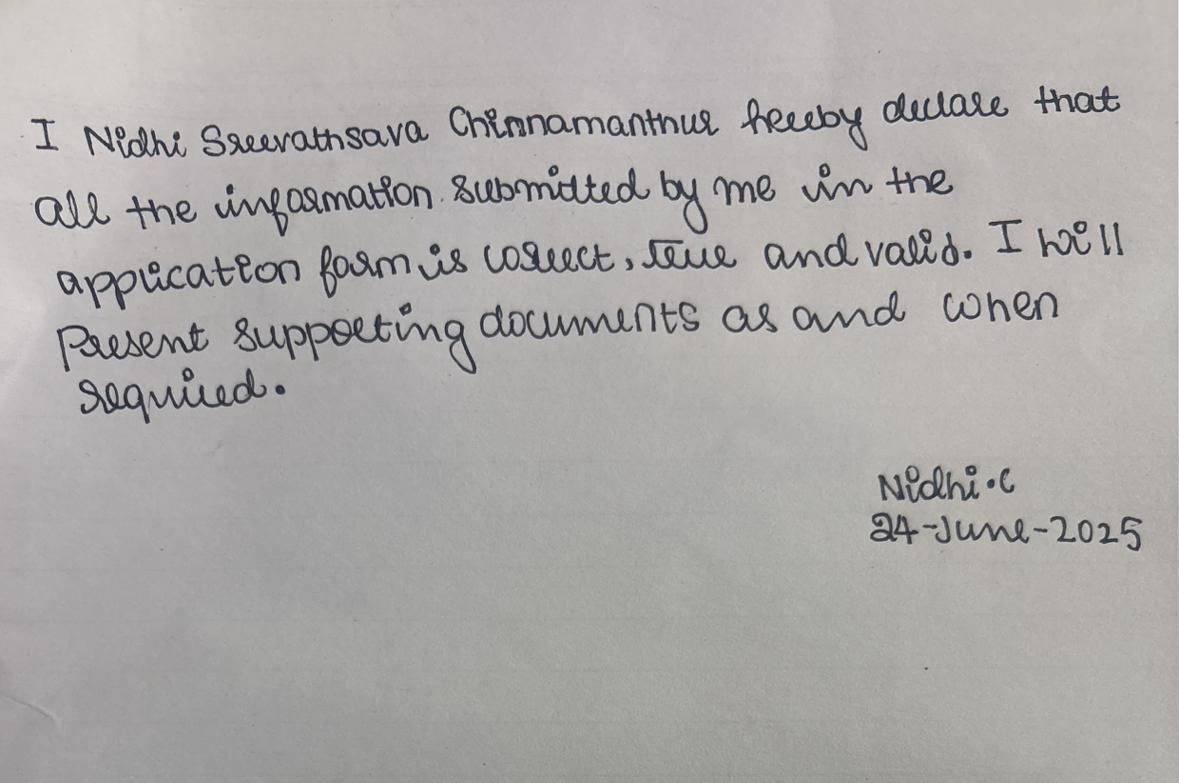 I Nidhi Sreevathsava Chinnamanthur hereby declare that
all the information submitted by me in the
application form is correct, true and valid. I will
Present supporting documents as and when
required.
Nidhi.C
24-June-2025